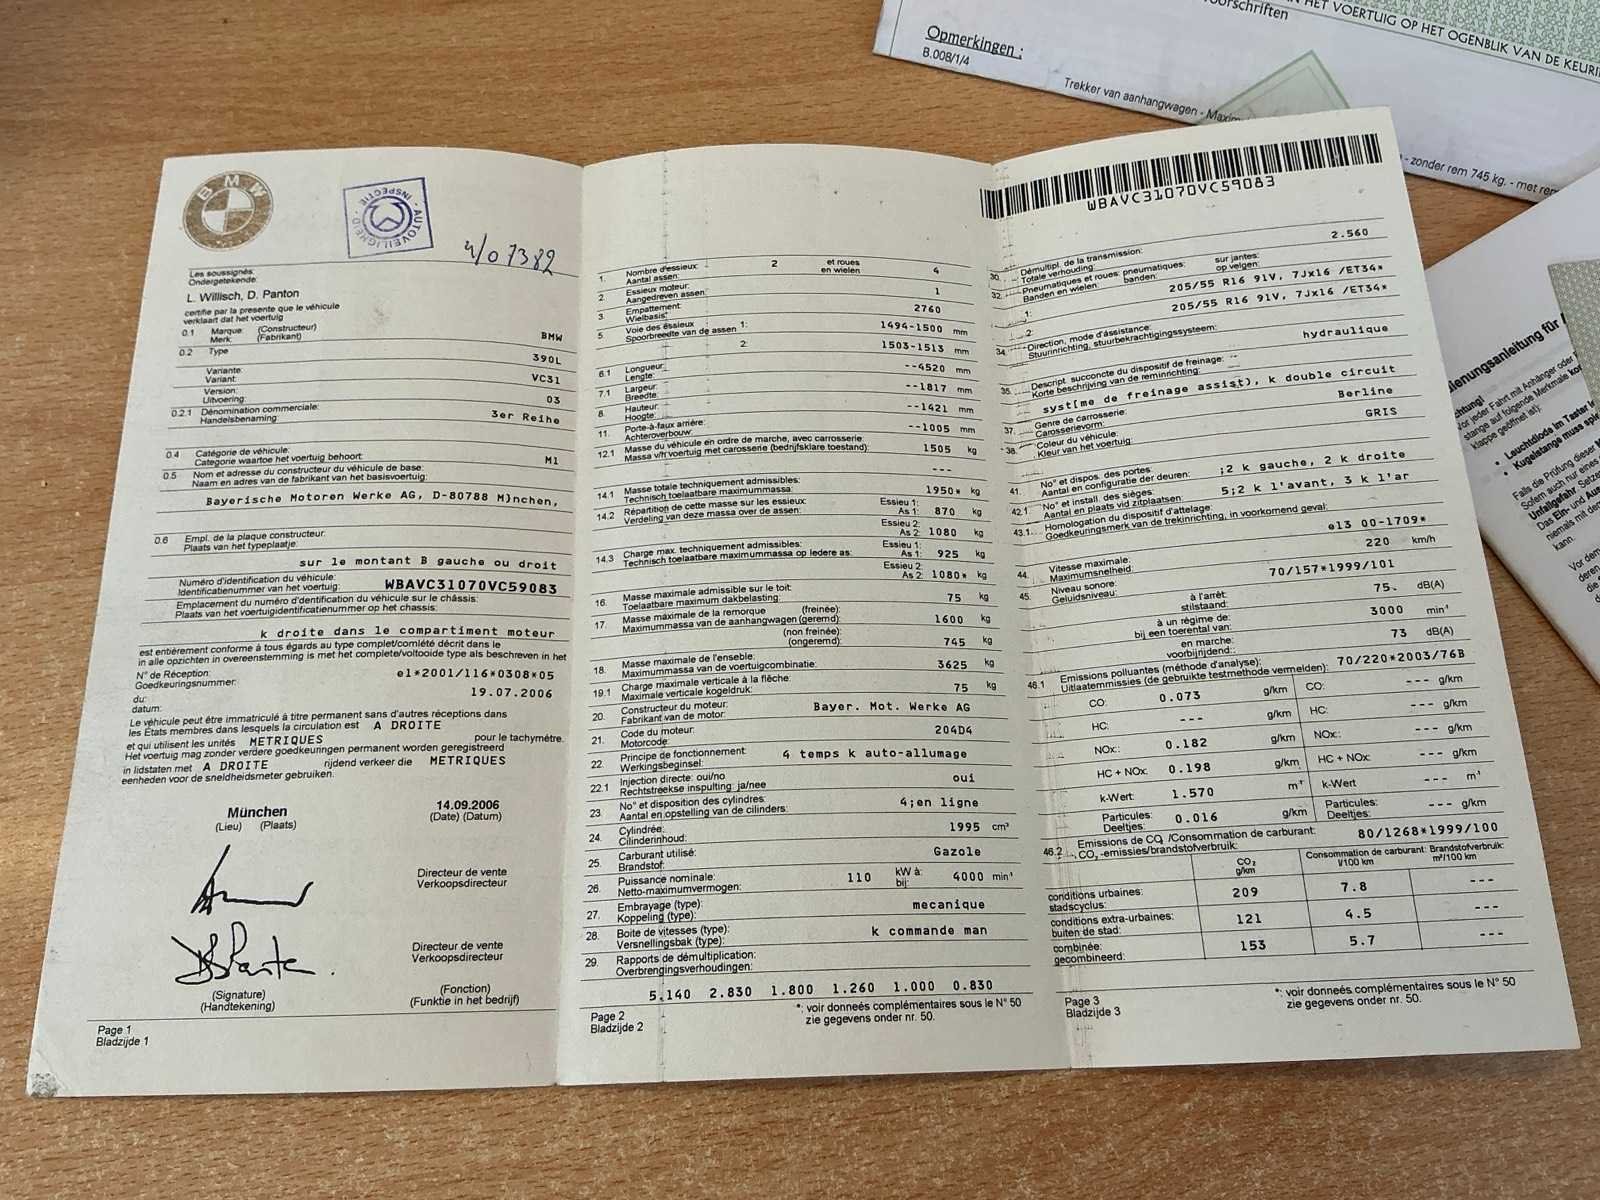 BMW
AUTOVEILIGHEID - INSPECTIE -
Les soussignés:
Ondergetekende:
L. Willisch, D. Panton
certifie par la presente que le véhicule
verklaart dat het voertuig
0.1 Marque: (Constructeur)
Merk: (Fabrikant) BMW
0.2 Type 390L
Variante:
Variant: VC31
Version:
Uitvoering: 03
0.2.1 Dénomination commerciale:
Handelsbenaming 3er Reihe
0.4 Catégorie de véhicule:
Categorie waartoe het voertuig behoort: M1
0.5 Nom et adresse du constructeur du véhicule de base:
Naam en adres van de fabrikant van het basisvoertuig:
Bayerische Motoren Werke AG, D-80788 M}nchen,
0.6 Empl. de la plaque constructeur:
Plaats van het typeplaatje:
sur le montant B gauche ou droit
Numéro d'identification du véhicule:
Identificatienummer van het voertuig: WBAVC31070VC59083
Emplacement du numéro d'identification du véhicule sur le châssis:
Plaats van het voertuigidentificatienummer op het chassis:
k droite dans le compartiment moteur
est entièrement conforme à tous égards au type complet/comlété décrit dans le
in alle opzichten in overeenstemming is met het complete/voltooide type als beschreven in het
N° de Réception:
Goedkeuringsnummer: e1*2001/116*0308*05
du:
datum: 19.07.2006
Le véhicule peut être immatriculé à titre permanent sans d'autres réceptions dans
les États membres dans lesquels la circulation est A DROITE
et qui utilisent les unités METRIQUES pour le tachymètre.
Het voertuig mag zonder verdere goedkeuringen permanent worden geregistreerd
in lidstaten met A DROITE rijdend verkeer die METRIQUES
eenheden voor de sneldheidsmeter gebruiken.
München 14.09.2006
(Lieu) (Plaats) (Date) (Datum)
Directeur de vente
Verkoopsdirecteur
Directeur de vente
Verkoopsdirecteur
(Signature) (Fonction)
(Handtekening) (Funktie in het bedrijf)
Page 1
Bladzijde 1
1. Nombre d'essieux: 2 et roues 4
Aantal assen: en wielen
2. Essieux moteur: 1
Aangedreven assen:
3 Empattement: 2760
Wielbasis:
5 Voie des éssieux 1: 1494-1500 mm
Spoorbreedte van de assen
2: 1503-1513 mm
6.1 Longueur: --4520 mm
Lengte:
7.1 Largeur: --1817 mm
Breedte:
8. Hauteur: --1421 mm
Hoogte:
11. Porte-à-faux arrière: --1005 mm
Achteroverbouw:
12.1 Masse du véhicule en ordre de marche, avec carrosserie: 1505 kg
Massa v/h voertuig met carosserie (bedrijfsklare toestand):
---
14.1 Masse totale techniquement admissibles: 1950* kg
Technisch toelaatbare maximummassa:
14.2 Répartition de cette masse sur les essieux: Essieu 1:
Verdeling van deze massa over de assen: As 1: 870 kg
Essieu 2:
As 2: 1080 kg
14.3 Charge max. techniquement admissibles: Essieu 1:
Technisch toelaatbare maximummassa op ledere as: As 1: 925 kg
Essieu 2:
As 2: 1080* kg
16. Masse maximale admissible sur le toit: 75 kg
Toelaatbare maximum dakbelasting:
17. Masse maximale de la remorque (freinée): 1600 kg
Maximummassa van de aanhangwagen (geremd):
(non freinée): 745 kg
(ongeremd):
18. Masse maximale de l'enseble: 3625 kg
Maximummassa van de voertuigcombinatie:
19.1 Charge maximale verticale à la flêche: 75 kg
Maximale verticale kogeldruk:
20. Constructeur du moteur: Bayer. Mot. Werke AG
Fabrikant van de motor:
21. Code du moteur: 204D4
Motorcode:
22. Principe de fonctionnement 4 temps k auto-allumage
Werkingsbeginsel:
22.1 Injection directe: oui/no oui
Rechtstreekse inspulting: ja/nee
23. No° et disposition des cylindres: 4;en ligne
Aantal en opstelling van de cilinders:
24. Cylindrée: 1995 cm³
Cilinderinhoud:
25. Carburant utilisé: Gazole
Brandstof:
26. Puissance nominale: 110 kW à: 4000 min⁻¹
Netto-maximumvermogen: bij:
27. Embrayage (type): mecanique
Koppeling (type):
28. Boite de vitesses (type): k commande man
Versnellingsbak (type):
29. Rapports de démultiplication:
Overbrengingsverhoudingen:
5.140 2.830 1.800 1.260 1.000 0.830
*: voir donneés complémentaires sous le N° 50
zie gegevens onder nr. 50.
Page 2
Bladzijde 2
WBAVC31070VC59083
30. Démultipl. de la transmission: 2.560
Totale verhouding:
32. Pneumatiques et roues: pneumatiques: sur jantes:
Banden en wielen: banden: op velgen:
1: 205/55 R16 91V, 7Jx16 /ET34*
2: 205/55 R16 91V, 7Jx16 /ET34*
34. Direction, mode d'assistance: hydraulique
Stuurinrichting, stuurbekrachtigingssysteem:
35. Descript. succoncte du dispositif de freinage: --
Korte beschrijving van de reminrichting:
syst[me de freinage assist), k double circuit
37. Genre de carrosserie: Berline
Carosserievorm:
38. Couleur du véhicule: GRIS
Kleur van het voertuig:
41. No° et dispos. des portes: ;2 k gauche, 2 k droite
Aantal en configuratie der deuren:
42.1 No° et install. des sièges: 5;2 k l'avant, 3 k l'ar
Aantal en plaats vid zitplaatsen:
43.1 Homologation du dispositif d'attelage:
Goedkeuringsmerk van de trekinrichting, in voorkomend geval: e13 00-1709*
44. Vitesse maximale: 220 km/h
Maximumsnelheid:
45. Niveau sonore: 70/157*1999/101
Geluidsniveau:
à l'arrêt: 75. dB(A)
stilstaand:
à un régime de: 3000 min⁻¹
bij een toerental van:
en marche: 73 dB(A)
voorbijrijdend:
46.1 Emissions polluantes (méthode d'analyse): 70/220*2003/76B
Uitlaatemissies (de gebruikte testmethode vermelden):
CO: 0.073 g/km CO: --- g/km
HC: --- g/km HC: --- g/km
NOx: 0.182 g/km NOx: --- g/km
HC + NOx: 0.198 g/km HC + NOx: --- g/km
k-Wert: 1.570 m⁻¹ k-Wert --- m⁻¹
Particules: 0.016 g/km Particules: --- g/km
Deeltjes: Deeltjes:
46.2 Emissions de CO₂ /Consommation de carburant: 80/1268*1999/100
CO₂-emissies/brandstofverbruik:
CO₂ g/km Consommation de carburant: Brandstofverbruik:
l/100 km m³/100 km
conditions urbaines: 209 7.8 ---
stadscyclus:
conditions extra-urbaines: 121 4.5 ---
buiten de stad:
combinée: 153 5.7 ---
gecombineerd:
*: voir donneés complémentaires sous le N° 50
zie gegevens onder nr. 50.
Page 3
Bladzijde 3
HET VOERTUIG OP HET OGENBLIK VAN DE KEURI
voorschriften
Opmerkingen :
B.008/1/4
Trekker van aanhangwagen - Maxim
- zonder rem 745 kg. - met rem
ienungsanleitung für
chtung!
vor jeder Fahrt mit Anhänger oder
stange auf folgende Merkmale kon
klappe geöffnet ist):
• Leuchtdiode im Taster
• Kugelstange muss spie
Falls die Prüfung dieser
Sofern auch nur eines
Unfallgefahr
Das Ein- und Aus
niemals mit dem
kann.
Vor dem